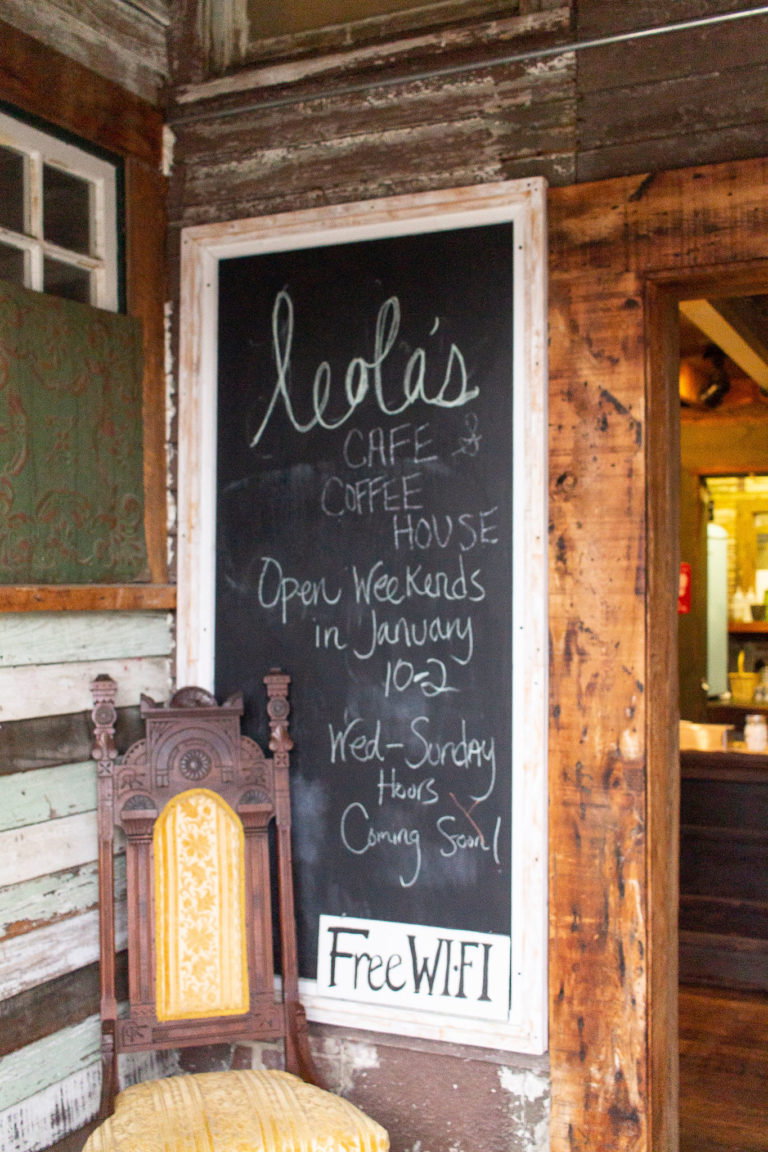 leola's
CAFE &
COFFEE
HOUSE
Open Weekends
in January
10-2
Wed-Sunday
Hours
Coming Soon!
Free WI-FI